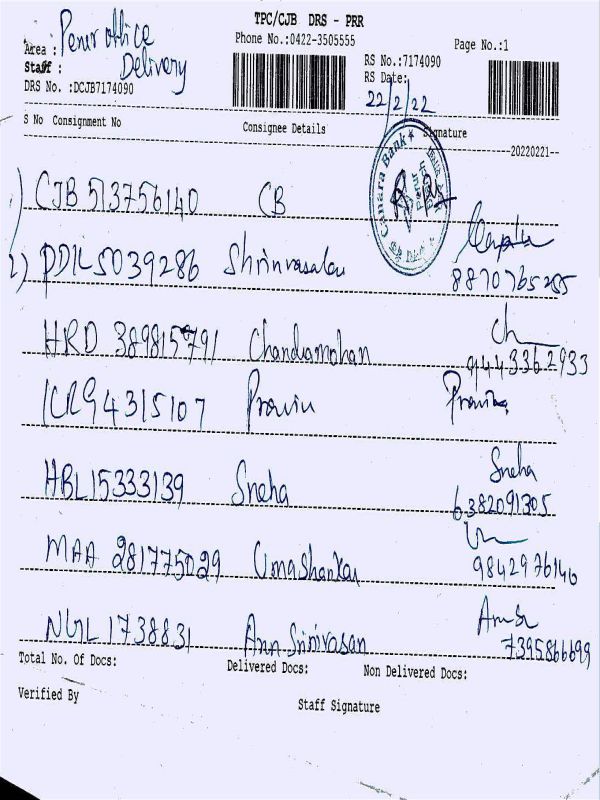 TPC/CJB DRS - PRR
Area : office Phone No.:0422-3505555 Page No.:1
Staff : Delivery RS No.:7174090
DRS No. :DCJB7174090 RS Date:
22/2/22
S No Consignment No Consignee Details Signature
20220221
1) CJB 513756140 CB
Canara Bank
2) PDK5039286 8870765255
HRD 389815791 Chandramohan Ch
9443362933
94315107 Pravin Pravin
HBL15333139 Sneha Sneha
6382091305
MAA 281775029 Umashankar
9842976146
NGL1738831 Ann Srinivasan
7395866699
Total No. Of Docs: Delivered Docs: Non Delivered Docs:
Verified By Staff Signature